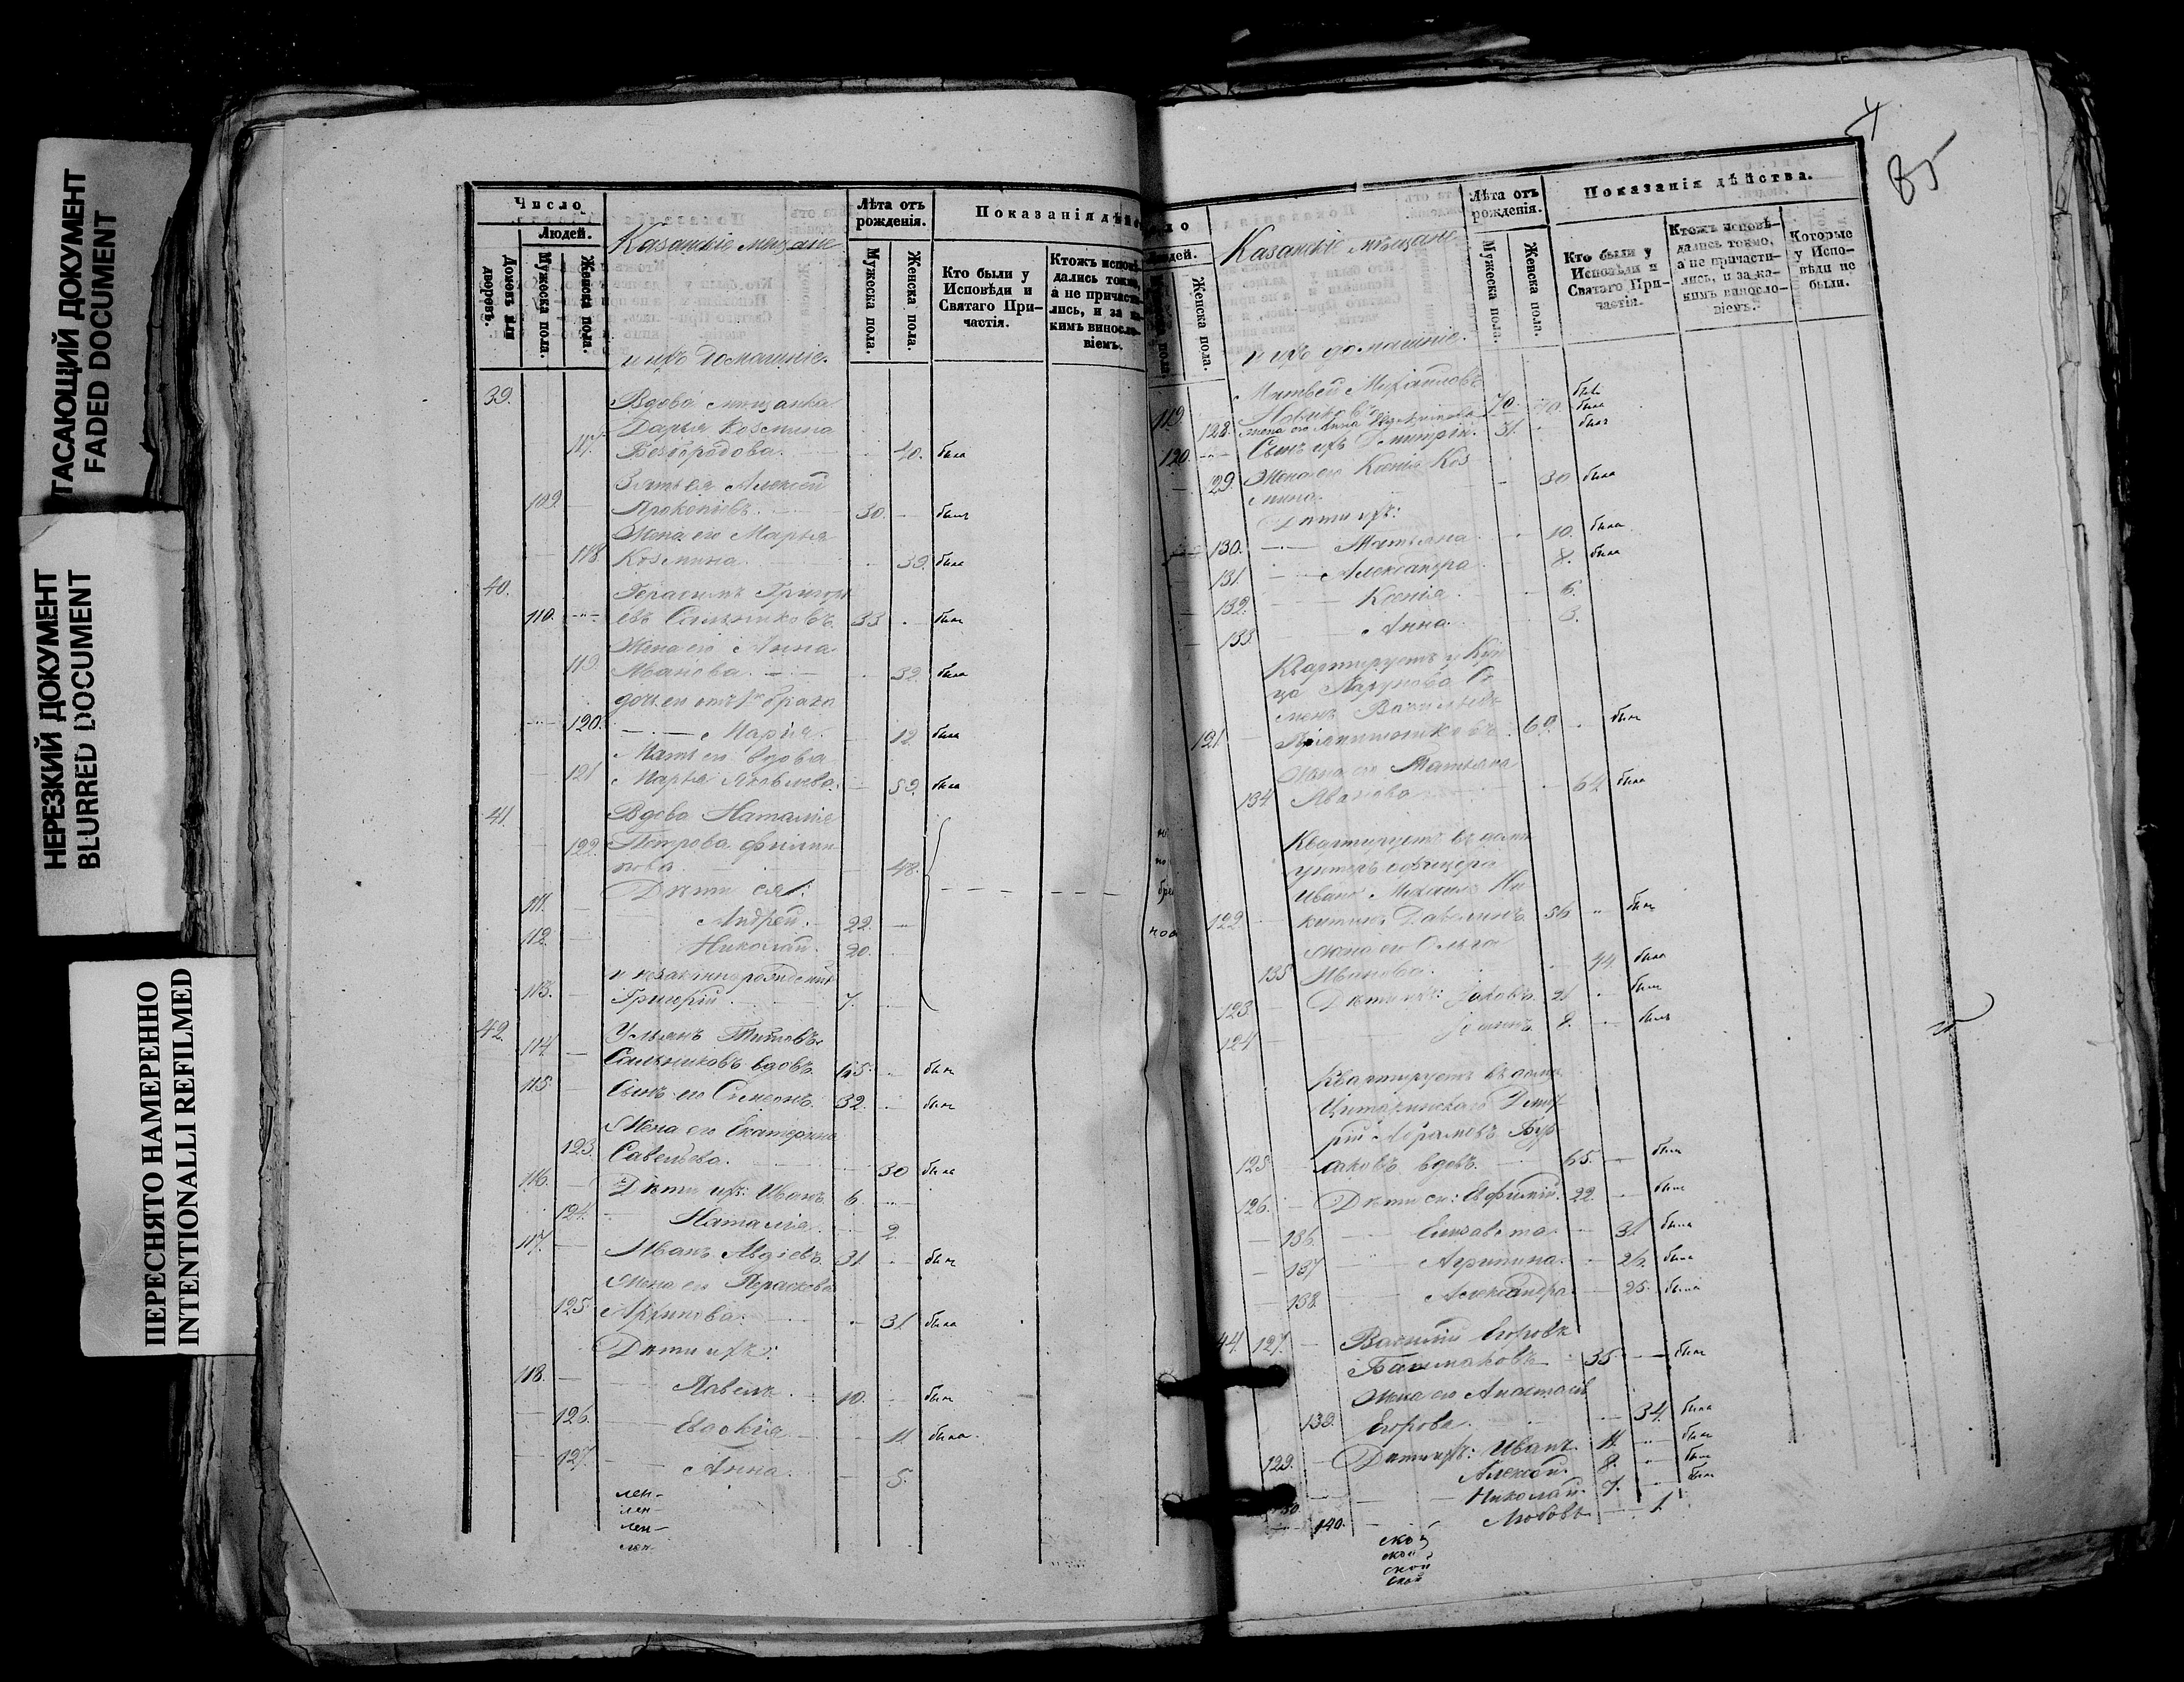 ТАСАЮЩИЙ ДОКУМЕНТ
FADED DOCUMENT
НЕРЕЗКИЙ ДОКУМЕНТ
BLURRED DOCUMENT
ПЕРЕСНЯТО НАМЕРЕННО
INTENTIONALLI REFILMED
Число
Людей.
Домовъ или дворовъ.
Мужеска пола.
Женска пола.
Казанскіе мещане
и ихъ домашніе.
Лѣта отъ рожденія.
Мужеска пола.
Женска пола.
Показанія дѣй
Кто были у Исповѣди и Святаго Причастія.
Ктожъ исповѣ
дались токмо,
а не причасти
лись, и за ка
кимъ виносло
віемъ.
39. Вдова мещанка
Дарья Козмина
117. Безбородова. 40. была
Зять ея Алексей
109. Прокопіевъ. 30. былъ
Жена его Марья
118 Козмина. 39. была
40. Герасимъ Григорь
110. евъ Сальниковъ. 33 былъ
Жена его Анна
119. Иванова. 32. была
дочь его отъ 1го брака
120. Марія. 12 была
Мать его вдова
121 Марья Яковлева. 59. была
41. Вдова Наталія
122. Петрова Филип
пова. 48.
Дѣти ея:
111. Андрей. 22.
112. Николай. 20.
и незаконнорожденный
113. Григорій. 7.
42. 114 Ульянъ Титовъ
Сальниковъ вдовъ. 65. былъ
115. Сынъ его Симеонъ. 32. былъ
Жена его Екатерина
123. Савельева. 30 была
116. Дѣти ихъ: Иванъ. 6.
124. Наталія. 2.
117. Иванъ Авдіевъ. 31 былъ
Жена его Парасковья
125. Архипова. 31. была
Дѣти ихъ:
118. Павелъ. 10. былъ
126. Евдокія 11. была
127. Анна. 5.
лен-
лен-
лен-
лен-
85
Людей.
Женска пола.
Казанскіе мѣщане
и ихъ домашніе.
Лѣта отъ рожденія.
Мужеска пола.
Женска пола.
Показанія дѣйства.
Кто были у Исповѣди и Святаго Причастія.
Ктожъ исповѣдались токмо, а не причастились, и за какимъ винословіемъ.
Которые у Исповѣди не были.
Матвей Михайловъ
119. Новиковъ 70. былъ
128. жена его Анна 70. была
120. Сынъ ихъ Дмитрій. 31. былъ
129. Жена его Ксенія Коз
мина. 30 была
Дѣти ихъ:
130. Татьяна 10. была
131. Александра 8. была
132. Ксенія. 6.
133 Анна. 3.
Квартируетъ у Куп
ца
121. 69. былъ
Жена его Татьяна
134 Иванова 64 была
Квартируетъ въ доме
унтеръ офицера
Ивана
122 36 былъ
Жена его Ольга
135 Иванова. 44. была
123 Дѣти ихъ: Іаковъ. 21 былъ
124 8. былъ
Квартируетъ въ доме
Дмит
рій Абрамовъ Бур
125 лаковъ вдовъ. 65. былъ
126. Дѣти его: Евфимій. 22. былъ
136. Елизавета. 31 была
137 Агрипина. 26. была
138 Александра. 25. была
44. 127. Василій Егоровъ
Башмаковъ 35. былъ
Жена его Анастасія
139. Егорова. 34. была
129. Дѣти ихъ: Иванъ. 11. былъ
Алексей. 8. былъ
130. Николай 7. былъ
140. Любовь 1.
ской
ской
ской
ской